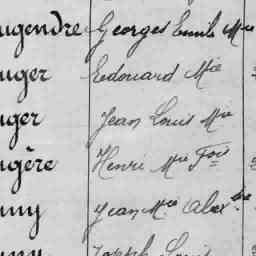 ugendre Georges Emile Mce
uger Edouard Mie
uger Jean Louis Mie
ugère Henri Mie Fois
uny Jean Mce Alexdre
uny Joseph Louis